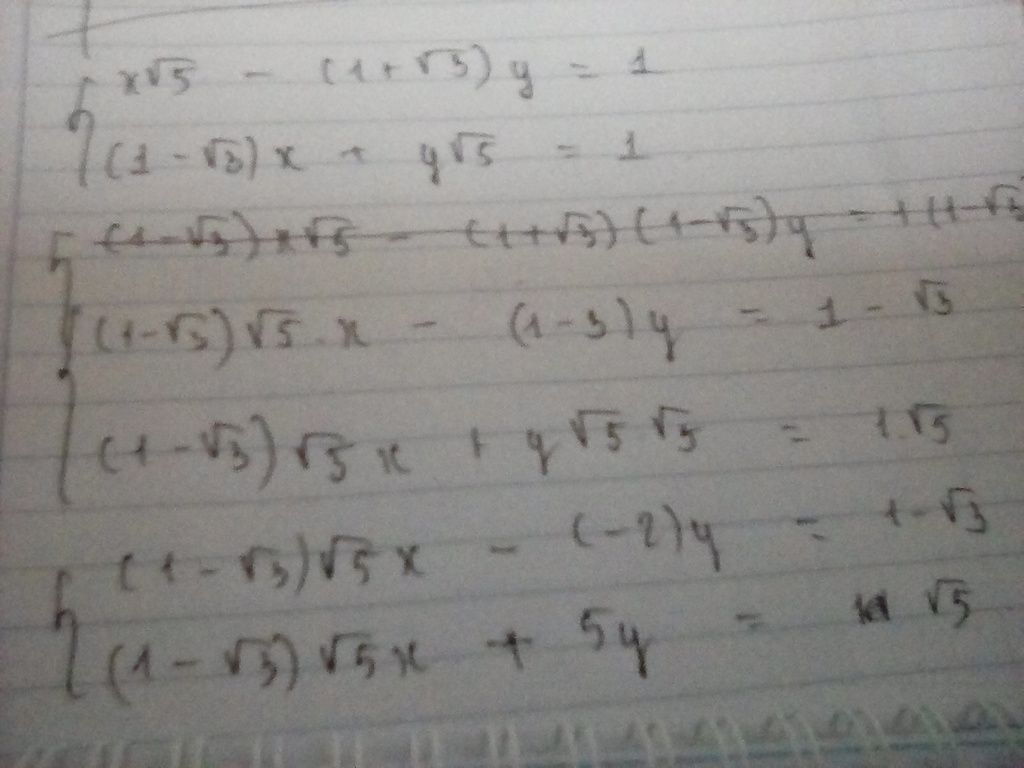 x√5 - (1+√3)y = 1
(1-√3)x + y√5 = 1
(1-√3)x√5 - (1+√3)(1-√3)y = 1(1-√3
(1-√3)√5.x - (1-3)y = 1-√3
(1-√3)√5x + y√5√5 = 1.√5
(1-√3)√5x - (-2)y = 1-√3
(1-√3)√5x + 5y = √5